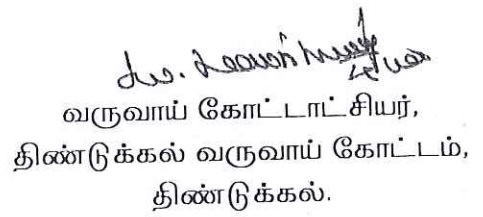 வருவாய் கோட்டாட்சியர்,
திண்டுக்கல் வருவாய் கோட்டம்,
திண்டுக்கல்.